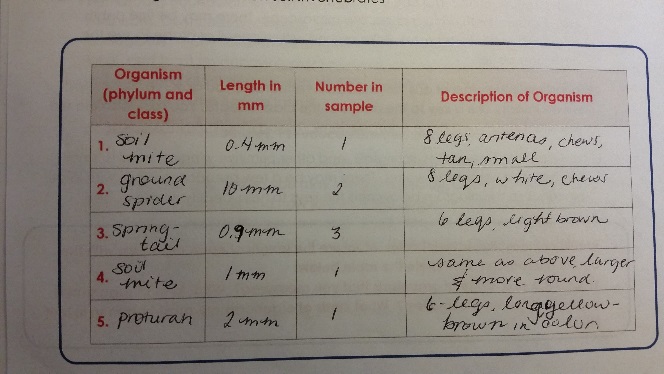 Organism
(phylum and
class)
Length in
mm
Number in
sample
Description of Organism
1. Soil
mite
0.4 mm
1
8 legs, antenas, chews,
tan, small
2. ground
spider
10 mm
2
8 legs, white, chews
3. Spring-
tail
0.9 mm
3
6 legs, light brown
4. Soil
mite
1 mm
1
same as above larger
& more round.
5. proturan
2 mm
1
6-legs, long yellow-
brown in color